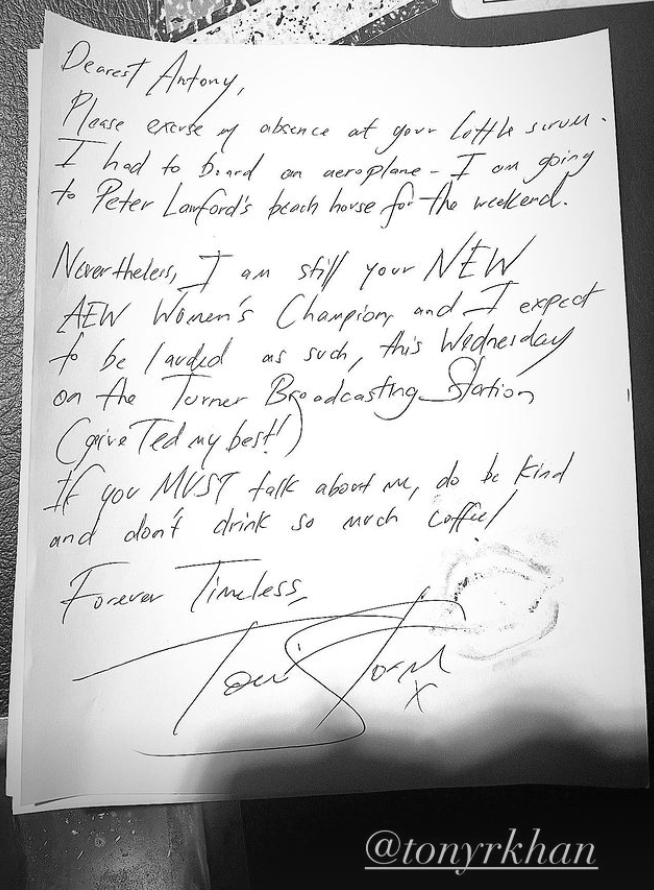 Dearest Antony,
Please excuse my absence at your little scrum.
I had to board an aeroplane - I am going
to Peter Lawford's beach house for the weekend.
Nevertheless, I am still your NEW
AEW Women's Champion, and I expect
to be lauded as such, this Wednesday
on the Turner Broadcasting Station
(give Ted my best!)
If you MUST talk about me, do be kind
and don't drink so much coffee!
Forever Timeless,
Toni Storm
X
@tonyrkhan